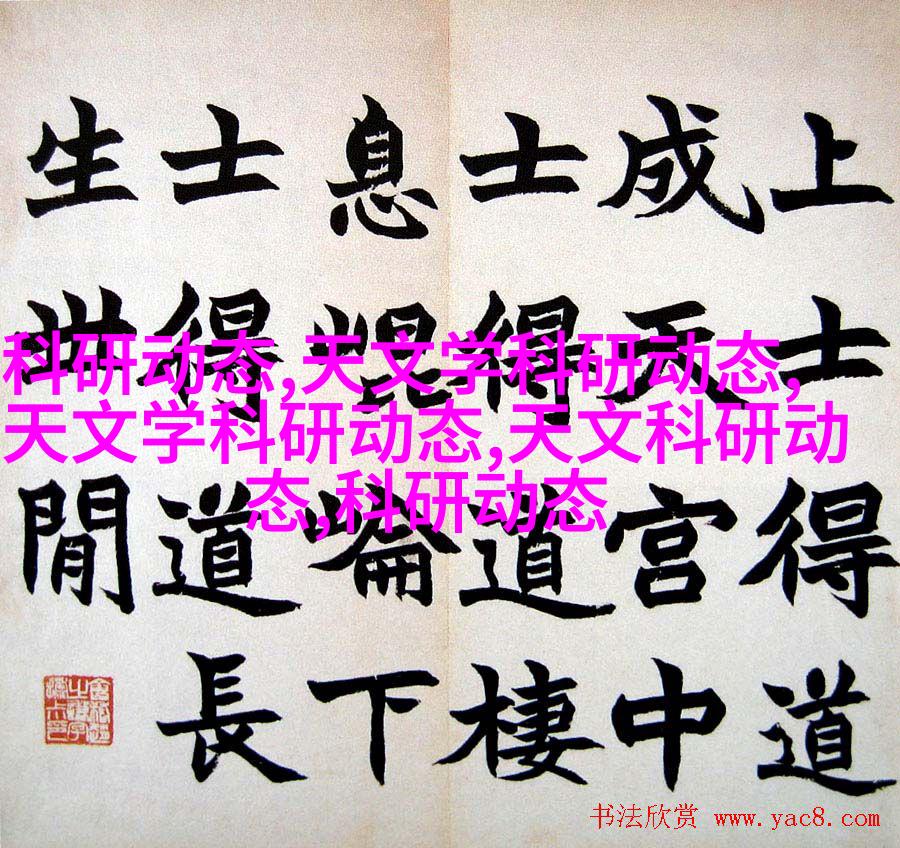 上士得道
成天宫中
士得道棲
息崐崘下
士得道長
生世閒
科研动态,天文学科研动态,
天文学科研动态,天文科研动
态,科研动态
书法欣赏 www.yac8.com